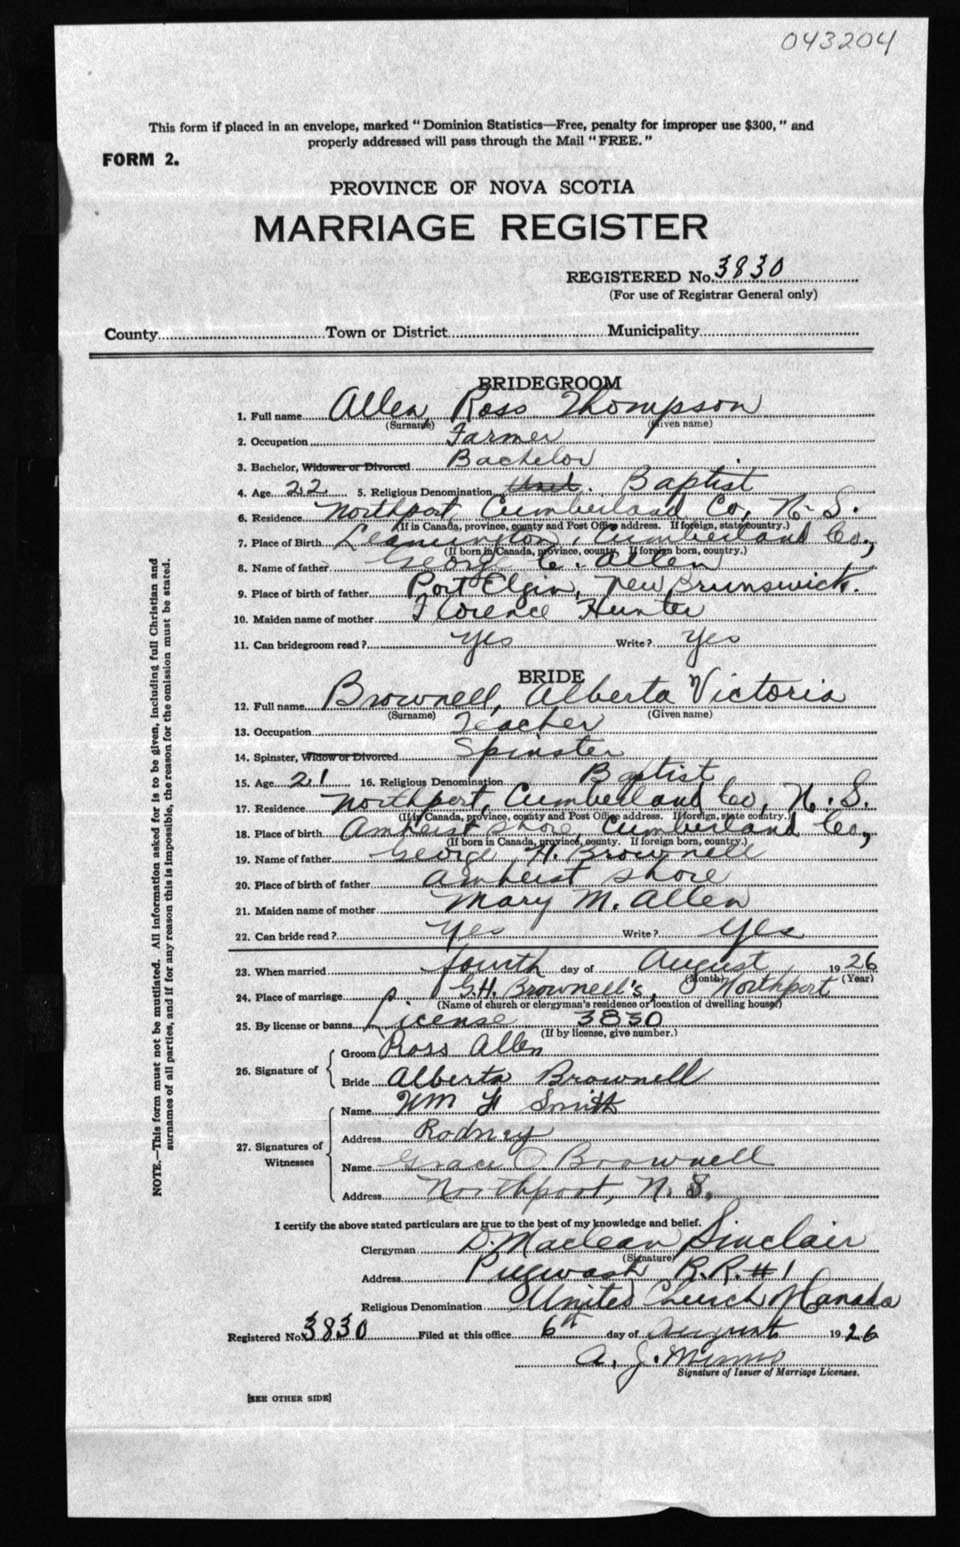 043204
This form if placed in an envelope, marked "Dominion Statistics—Free, penalty for improper use $300," and
properly addressed will pass through the Mail "FREE."
FORM 2.
PROVINCE OF NOVA SCOTIA
MARRIAGE REGISTER
REGISTERED No. 3830
(For use of Registrar General only)
County Town or District Municipality
BRIDEGROOM
1. Full name Allen, Ross Thompson
(Surname) (Given name)
2. Occupation Farmer
3. Bachelor, Widower or Divorced Bachelor
4. Age 22 5. Religious Denomination Baptist
6. Residence Northport, Cumberland Co, N. S.
(If in Canada, province, county and Post Office address. If foreign, state country.)
7. Place of Birth Leamington, Cumberland Co.,
(If born in Canada, province, county. If foreign born, country.)
8. Name of father George C. Allen
9. Place of birth of father Port Elgin, New Brunswick.
10. Maiden name of mother Florence Hunter
11. Can bridegroom read? Yes Write? Yes
BRIDE
12. Full name Brownell, Alberta Victoria
(Surname) (Given name)
13. Occupation Teacher
14. Spinster, Widow or Divorced Spinster
15. Age 21 16. Religious Denomination Baptist
17. Residence Northport, Cumberland Co, N. S.
(If in Canada, province, county and Post Office address. If foreign, state country.)
18. Place of birth Amherst Shore, Cumberland Co,
(If born in Canada, province, county. If foreign born, country.)
19. Name of father George H. Brownell
20. Place of birth of father Amherst Shore
21. Maiden name of mother Mary M. Allen
22. Can bride read? Yes Write? Yes
23. When married fourth day of August 1926
(Month) (Year)
24. Place of marriage G.H. Brownell's, Northport
(Name of church or clergyman's residence or location of dwelling house)
25. By license or banns License 3830
(If by license, give number.)
26. Signature of
Groom Ross Allen
Bride Alberta Brownell
27. Signatures of Witnesses
Name Wm H Smith
Address Rodney
Name Grace O. Brownell
Address Northport, N. S.
I certify the above stated particulars are true to the best of my knowledge and belief.
Clergyman D. Maclean Sinclair
(Signature)
Address Pugwash R.R. #1
Religious Denomination United Church of Canada
Registered No. 3830 Filed at this office 6th day of August 1926
A. J.
Signature of Issuer of Marriage Licenses.
[SEE OTHER SIDE]
NOTE.—This form must not be mutilated. All information asked for is to be given, including full Christian and
surnames of all parties, and if for any reason this is impossible, the reason for the omission must be stated.